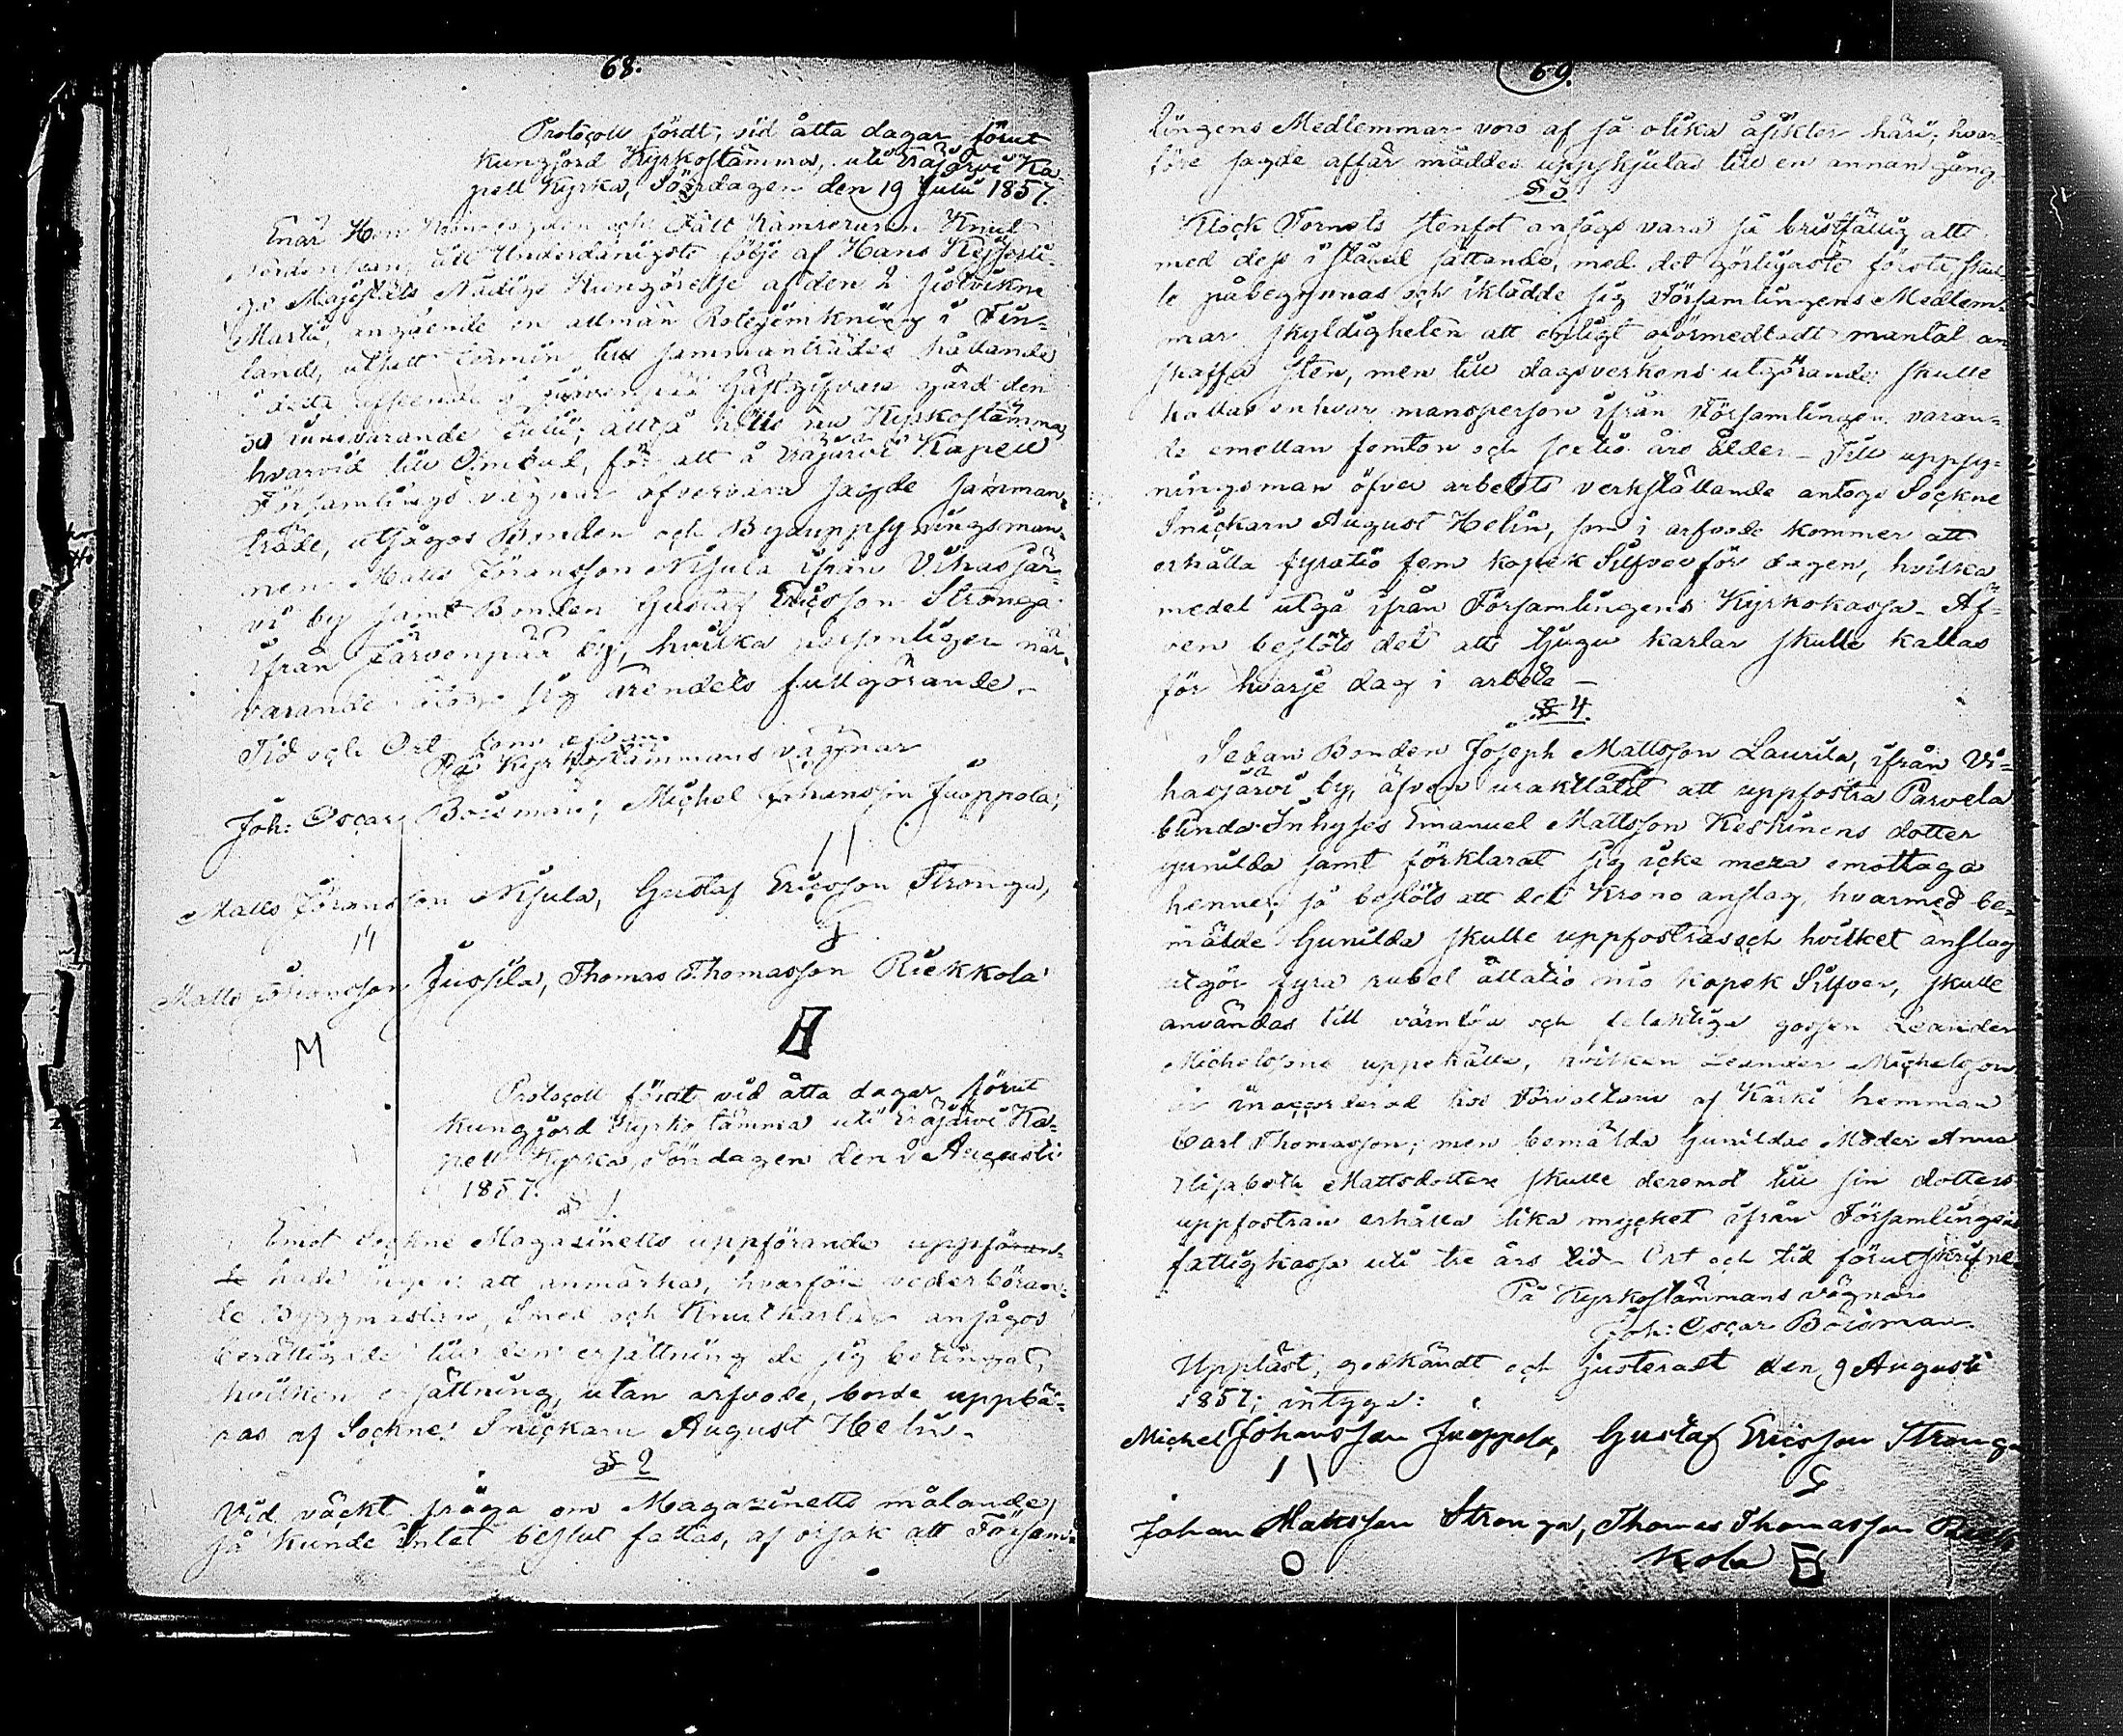 68.
Protocoll fördt, vid åtta dagar förut
kungjord Kyrkostämma, uti Eräjärvi Ka-
pell Kyrka, Söndagen den 19 Julii 1857.
Enär Herr och Fält Kamereraren Knut
till Underdånigste följe af Hans Kejserli-
ga Majestäts Nådiga Kungörelse af den 2 sistvikne
Martii, angående en allmän Rotejemkning i Fin-
land, utsatt termin till sammanträdes hållande
i detta afseende å Gästgifvare gård den
30 innevarande Julii; alltså hölls nu Kyrkostämma,
hvarvid till Ombud, för att å Eräjärvi Kapell
Församlings vägnar öfvervara sagde samman-
träde, utsågos Bonden och Byauppsyningsman-
nen Matts Jöransson Nisula ifrån Vihasjär-
vi by samt Bonden Gustaf Ericsson Stronga
ifrån Järvenpää by, hvilka personligen när-
varande åtogo sig ärendets fullgörande.
Tid och Ort som ofvan.
På Kyrkostämmans vägnar
Joh: Oscar Boisman; Michel Johansson Juoppola;
Matts Jöransson Nisula, Gustaf Ericsson Stronga,
Matts Johansson Jussila, Thomas Thomasson Riekkola
M
Protocoll fördt vid åtta dagar förut
kungjord Kyrkostämma uti Eräjärvi Ka-
pell Kyrka, Söndagen den 2 Augusti
1857.
§ 1.
Emot Sockne Magazinetts uppförande uppföran-
de hade ingen att anmärka, hvarföre vederböran-
de Byggmästare, Smed och Knutkarlar ansågos
berättigade till den ersättning de sig betingat,
hvilken ersättning, utan arfvode, borde uppbä-
ras af Sockne Snickarn August Helin.
§ 2
Vid väckt fråga om Magazinetts målande,
så kunde intet beslut fattas, af orsak att Försam-
69.
lingens Medlemmar voro af så olika åsikter häri; hvar-
före sagde affär måddes uppskjutas till en annan gång.
§ 3
Klock Tornets stenfot ansågs vara så bristfällig att
med dess i stånd sättande, med det görligaste första, skul-
le påbegynnas och iklädde sig Församlingens Medlem-
mar skyldigheten att enligt oförmedladt mantal an-
skaffa sten, men till dagsverkens utgörande skulle
kallas en hvar mansperson ifrån Församlingen varan-
de emellan femton och sextio års ålder - Till uppsy-
ningsman öfver arbetets verkställande antogs Sockne
Snickarn August Helin, som i arfvode kommer att
erhålla fyratio fem kopek Silfver för dagen, hvilka
medel utgå ifrån Församlingens Kyrkokassa - Äf-
ven beslöts det att tjugu karlar skulle kallas
för hvarje dag i arbete -
§ 4.
Sedan Bonden Joseph Mattsson Laurila, ifrån Vi-
hasjärvi by, äfven uraktlåtit att uppfostra Parvela
blinda Inhyses Emanuel Mattsson Keskinens dotter
Gunilda samt förklarat sig icke mera emottaga
henne; så beslöts att det Krono anslag, hvarmed be-
mälde Gunilda skulle uppfostras och hvilket anslag
utgör fyra rubel åttatio nio kopek Silfver, skulle
användas till värnlöse och gossen Leander
Michelssons uppehälle, hvilken Leander Michelsson
är inaccorderad hos Förvaltare af Kärki hemman
Carl Thomasson; men bemälda Gunildas Moder Anna
Elisabeth Mattsdotter skulle deremot till sin dotters
uppfostran erhålla lika mycket ifrån Församlingens
fattigkassa uti tre års tid - Ort och tid förutskrifne.
På Kyrkostämmans vägnar
Joh: Oscar Boisman.
Uppläst, godkändt och justeradt den 9 Augusti
1857; intyga:
Michel Johansson Juoppola, Gustaf Ericsson Stronga
Johan Mattsson Stronga, Thomas Thomasson Riek
kola